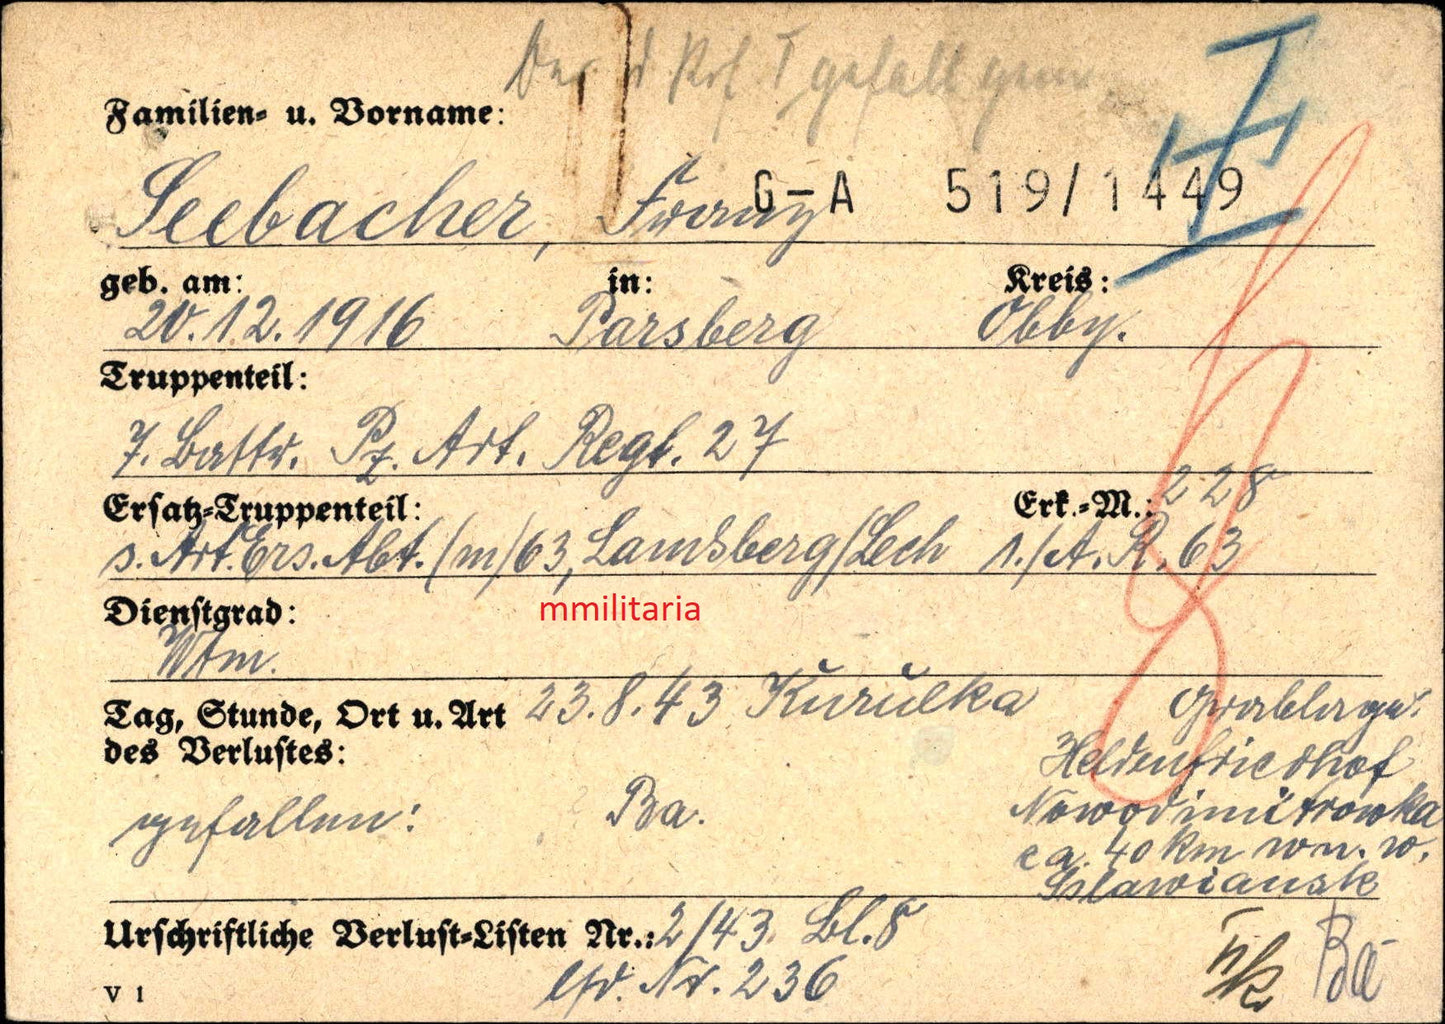 gefall
Familien- u. Vorname:
Seebacher, Franz G-A 519/1449
geb. am: in: Kreis:
20.12.1916 Parsberg Obby.
Truppenteil:
7. Battr. Pz. Art. Regt. 27
Ersatz-Truppenteil: Erk.-M.: 228
s. Art. Ers. Abt. (m) 63, Landsberg/Lech 1./A. R. 63
Dienstgrad: mmilitaria
Wtm.
Tag, Stunde, Ort u. Art 23.8.43 Kurulka Grablage:
des Verlustes: Heldenfriedhof
gefallen: Ba. Nowodimitrowka
ca. 40 km wn. w.
Sslawiansk
Urschriftliche Verlust-Listen Nr.: 2/43 Bl. 8
lfd. Nr. 236
V 1